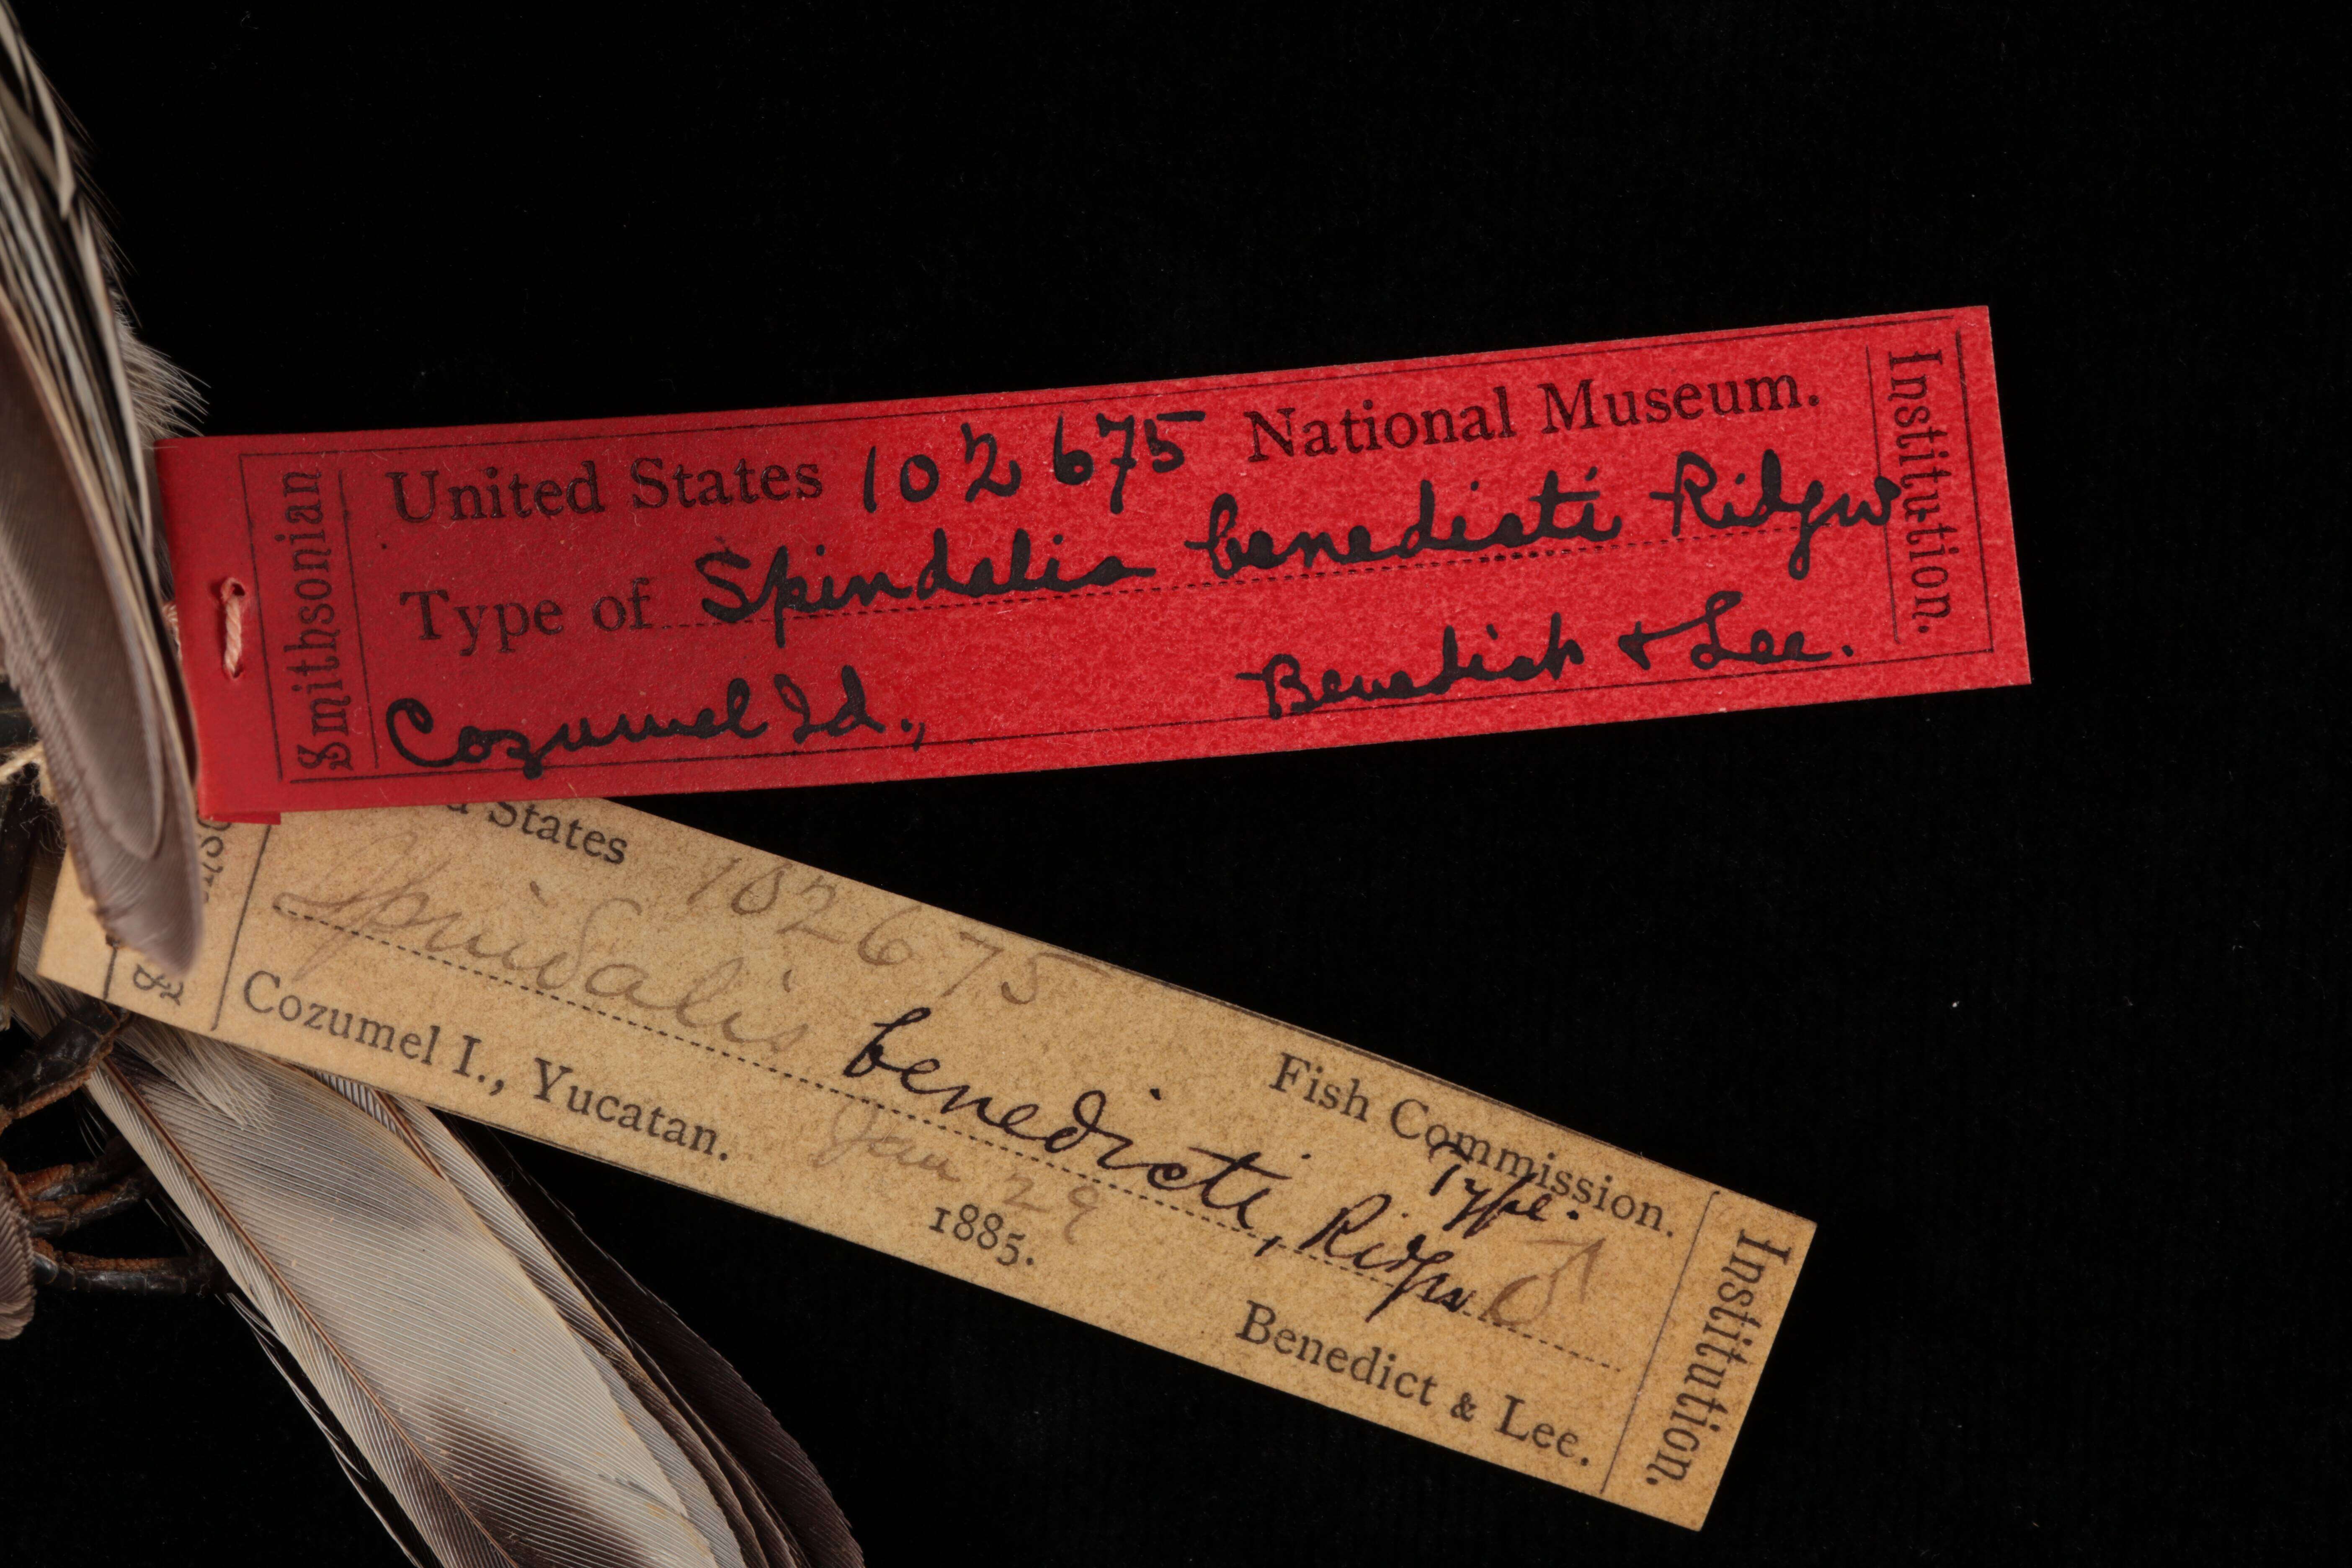 Smithsonian
United States 102675 National Museum.
Type of Spindalis benedicti Ridgw
Cozumel Id., Benedict & Lee.
Institution.
States 102675 Fish Commission.
Type.
Spindalis benedicti, Ridgw. ♂
Cozumel I., Yucatan. Jan 29 1885. Benedict & Lee.
Institution.